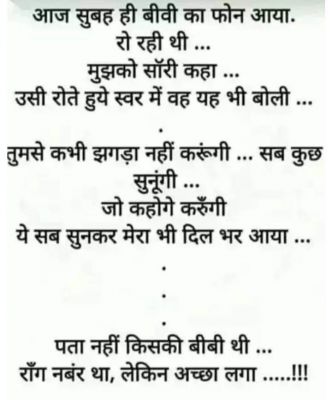 आज सुबह ही बीवी का फोन आया.
रो रही थी ...
मुझको सॉरी कहा ...
उसी रोते हुये स्वर में वह यह भी बोली ...
.
तुमसे कभी झगड़ा नहीं करूंगी ... सब कुछ
सुनूंगी ...
जो कहोगे करुँगी
ये सब सुनकर मेरा भी दिल भर आया ...
.
.
.
पता नहीं किसकी बीबी थी ...
राँग नबंर था, लेकिन अच्छा लगा .....!!!